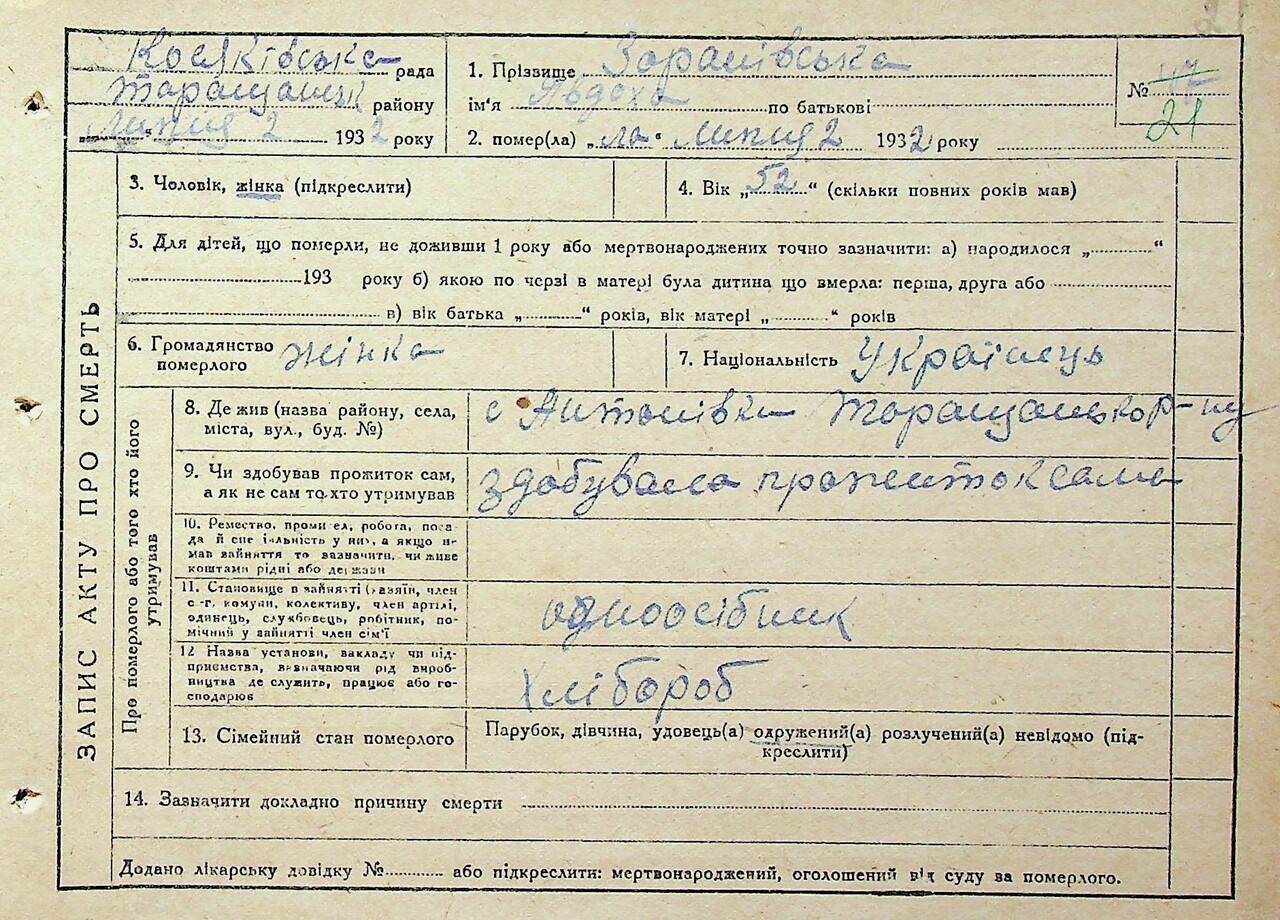 Косяківська рада
Таращанськ району
„Липня“ 2 1932 року
1. Прізвище Зоранівська
ім'я Явдоха по батькові
2. помер(ла) „ла“ Липня 2 1932 року
№ 47
21
3. Чоловік, жінка (підкреслити)
4. Вік „52“ (скільки повних років мав)
5. Для дітей, що померли, не доживши 1 року або мертвонароджених точно зазначити: а) народилося „..........“
193 року б) якою по черзі в матері була дитина що вмерла: перша, друга або
в) вік батька „..........“ років, вік матері „..........“ років
6. Громадянство
померлого
жінка
7. Національність Українець
ЗАПИС АКТУ ПРО СМЕРТЬ
Про померлого або того хто його
утримував
8. Де жив (назва району, села,
міста, вул., буд. №)
с Антонівка Таращанського р-ну
9. Чи здобував прожиток сам,
а як не сам то хто утримував
здобувала прожиток сама
10. Ремество, промисел, робота, поса-
да й спеціяльність у них, а якщо н-
мав зайняття то зазначити, чи живе
коштами рідні або держави
11. Становище в зайнятті (хазяїн, член
с-г. комуни, колективу, член артілі,
одинець, службовець, робітник, по-
мічний у зайнятті член сім'ї
одноосібник
12 Назва установи, закладу чи під-
приємства, визначаючи рід вироб-
ництва де служить, працює або го-
сподарює
Хлібороб
13. Сімейний стан померлого
Парубок, дівчина, удовець(а) одружений(а) розлучений(а) невідомо (під-
креслити)
14. Зазначити докладно причину смерти
Додано лікарську довідку №.......... або підкреслити: мертвонароджений, оголошений від суду за померлого.